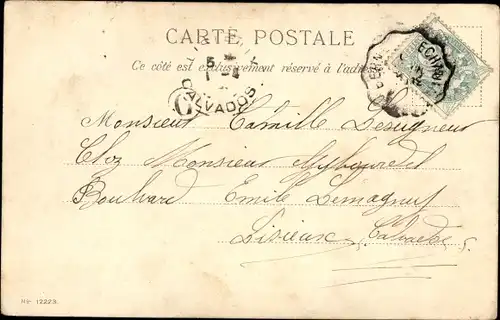 CARTE POSTALE
Ce côté est exclusivement réservé à l'adresse
CALVADOS
Monsieur Camille Lesigneur
Chez Monsieur
Boulvard Emile Demagny
Lisieux Calvados
12223.